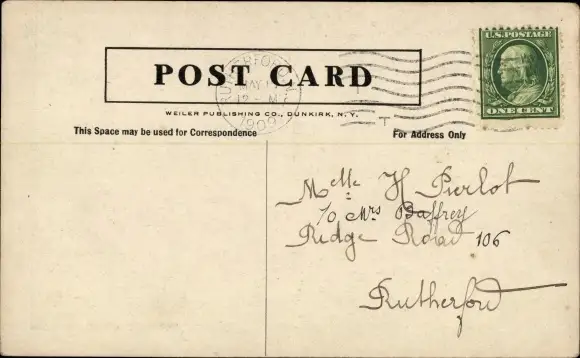 U.S. POSTAGE
POST CARD
RUTHERFORD
MAY
12 - M
1909
ONE CENT
WEILER PUBLISHING CO., DUNKIRK, N. Y.
T
This Space may be used for Correspondence
For Address Only
Melle H Pierlot
% Mrs Daffrey
Ridge Road 106
Rutherford